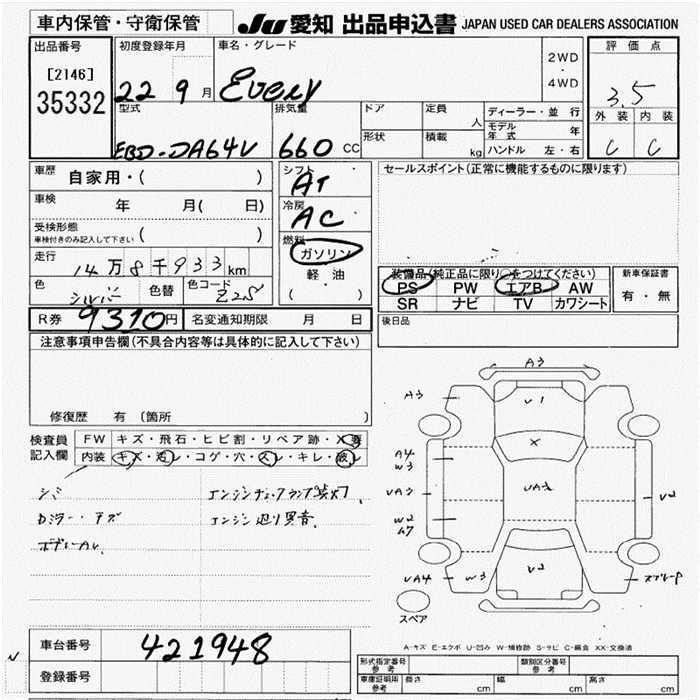 車内保管・守衛保管
JU 愛知 出品申込書 JAPAN USED CAR DEALERS ASSOCIATION
出品番号 初度登録年月 車名・グレード 2WD ・ 4WD 評価点
[2146]
35332 22 9月 Every 3.5
型式 排気量 ドア 定員 人 ディーラー・並行
外装 内装
モデル年式 年
EBD-DA64V 660 CC 形状 積載 kg ハンドル 左・右 C C
車歴 自家用・( ) シフト AT セールスポイント(正常に機能するものに限ります)
車検 年 月( 日) 冷房 AC
受検形態
車検付きのみ記入して下さい ( ) 燃料 ガソリン
走行 14万8千933km 軽油 装備品(純正品に限り○をつけてください) 新車保証書
色 シルバー 色替 色コード Z2S ( ) PS PW エアB AW 有・無
SR ナビ TV カワシート
R券 9310円 名変通知期限 月 日 後日品
注意事項申告欄(不具合内容等は具体的に記入して下さい)
修復歴 有 (箇所 )
検査員 FW キズ・飛石・ヒビ割・リペア跡・X要
記入欄 内装 キズ・汚レ・コゲ・穴・スレ・キレ・
シミ エンジンチェックランプ点灯
Dミラー・キズ エンジン廻り異音.
A3
A3 U1
X
A4
W3
UA3 UA3 U2
W2
UA4 W3 U2
スペア
A-キズ E-エクボ U-凹み W-補修跡 S-サビ C-腐食 XX-交換済
車台番号 421948
登録番号
形式指定番号 参考 類別区分番号 参考
車庫証明用 参考 長さ cm 幅 cm 高さ cm